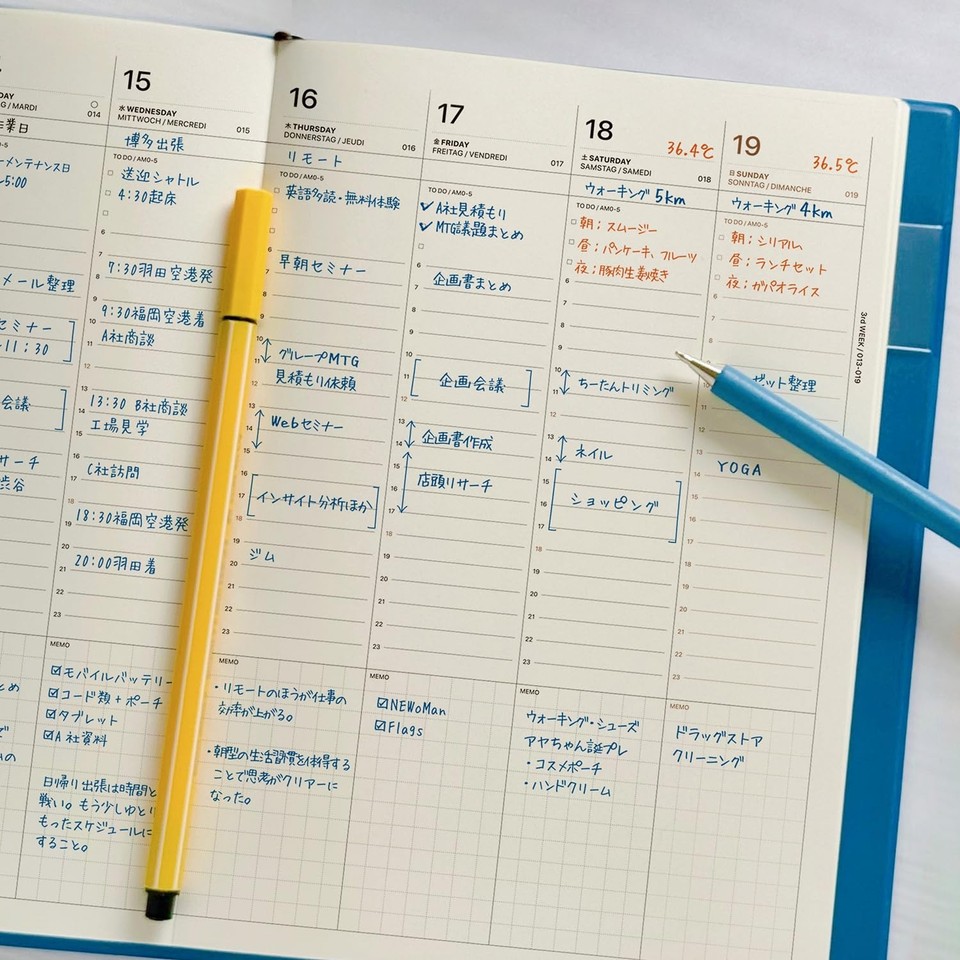 DAY
G / MARDI
014
作業日
0-5
ーメンテナンス日
5:00
メール整理
セミナー
11:30
会議
サーチ
渋谷
15
水 WEDNESDAY
MITTWOCH / MERCREDI
015
博多出張
TO DO / AM0-5
送迎シャトル
4:30起床
6
7
7:30羽田空港発
8
9
9:30福岡空港着
10
A社商談
11
12
13
13:30 B社商談
14
工場見学
15
16
C社訪問
17
18
18:30福岡空港発
19
20
20:00羽田着
21
22
23
MEMO
モバイルバッテリー
コード類+ポーチ
タブレット
A社資料
日帰り出張は時間と
戦い。もう少しゆとり
もったスケジュールに
すること。
16
木 THURSDAY
DONNERSTAG / JEUDI
016
リモート
TO DO / AM0-5
英語多読・無料体験
6
早朝セミナー
7
8
9
10
グループMTG
11
見積もり依頼
12
13
Webセミナー
14
15
16
インサイト分析ほか
17
18
19
ジム
20
21
22
23
MEMO
・リモートのほうが仕事の
効率が上がる。
・朝型の生活習慣を体得する
ことで思考がクリアーに
なった。
17
金 FRIDAY
FREITAG / VENDREDI
017
TO DO / AM0-5
A社見積もり
MTG議題まとめ
6
企画書まとめ
7
8
9
10
企画会議
11
12
13
企画書作成
14
15
店頭リサーチ
16
17
18
19
20
21
22
23
MEMO
NEWoMan
Flags
18
36.4℃
土 SATURDAY
SAMSTAG / SAMEDI
018
ウォーキング 5km
TO DO / AM0-5
朝;スムージー
昼;パンケーキ、フルーツ
夜;豚肉生姜焼き
6
7
8
9
10
ちーたんトリミング
11
12
13
ネイル
14
15
ショッピング
16
17
18
19
20
21
22
23
MEMO
ウォーキング・シューズ
アヤちゃん誕プレ
・コスメポーチ
・ハンドクリーム
19
36.5℃
日 SUNDAY
SONNTAG / DIMANCHE
019
ウォーキング 4km
TO DO / AM0-5
朝;シリアル
昼;ランチセット
夜;ガパオライス
6
7
8
10
ゼット整理
11
12
13
YOGA
14
15
16
17
18
19
20
21
22
23
MEMO
ドラッグストア
クリーニング
3rd WEEK / 013-019